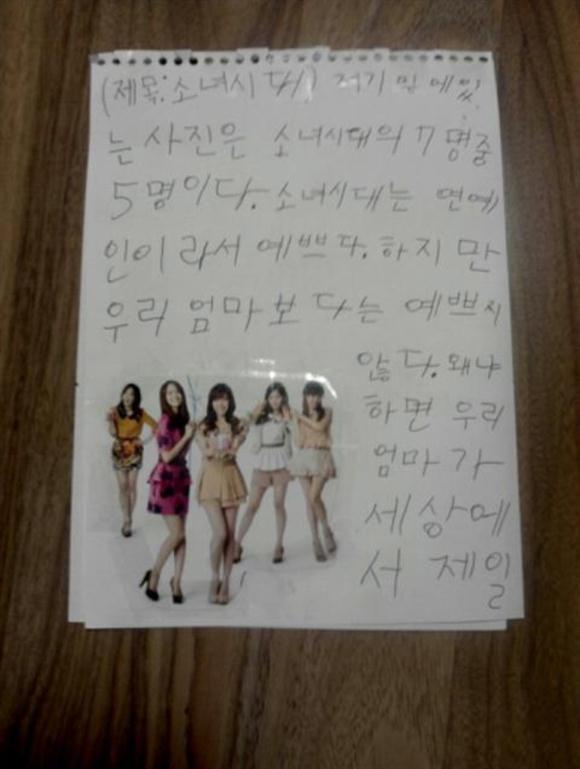 (제목:소녀시대) 저기 밑에있
는 사진은 소녀시대의 7명중
5명이다. 소녀시대는 연예
인이 라서 예쁘다. 하지만
우리 엄마보다는 예쁘지
않다. 왜냐
하면 우리
엄마가
세상에
서 제일